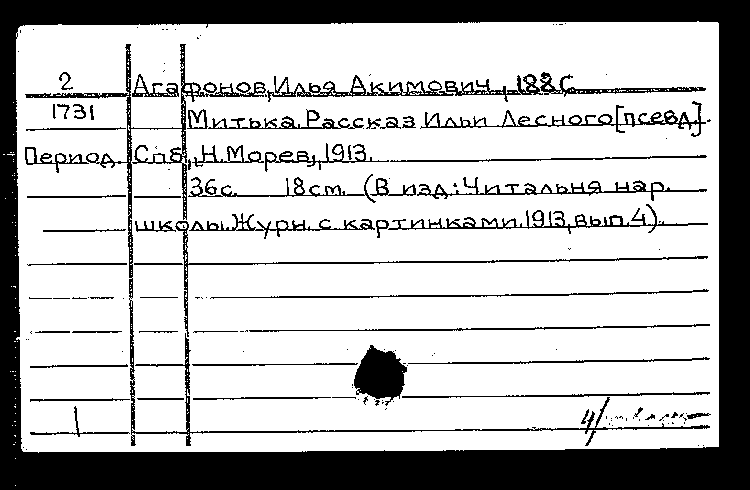 2 Агафонов, Илья Акимович, 188
1731 Митька. Рассказ Ильи Лесного [псевд].
Период. Спб., Н. Морев, 1913.
36с. 18см. (В изд.: Читальня нар.
школы. Журн. с картинками. 1913, вып. 4).
4/